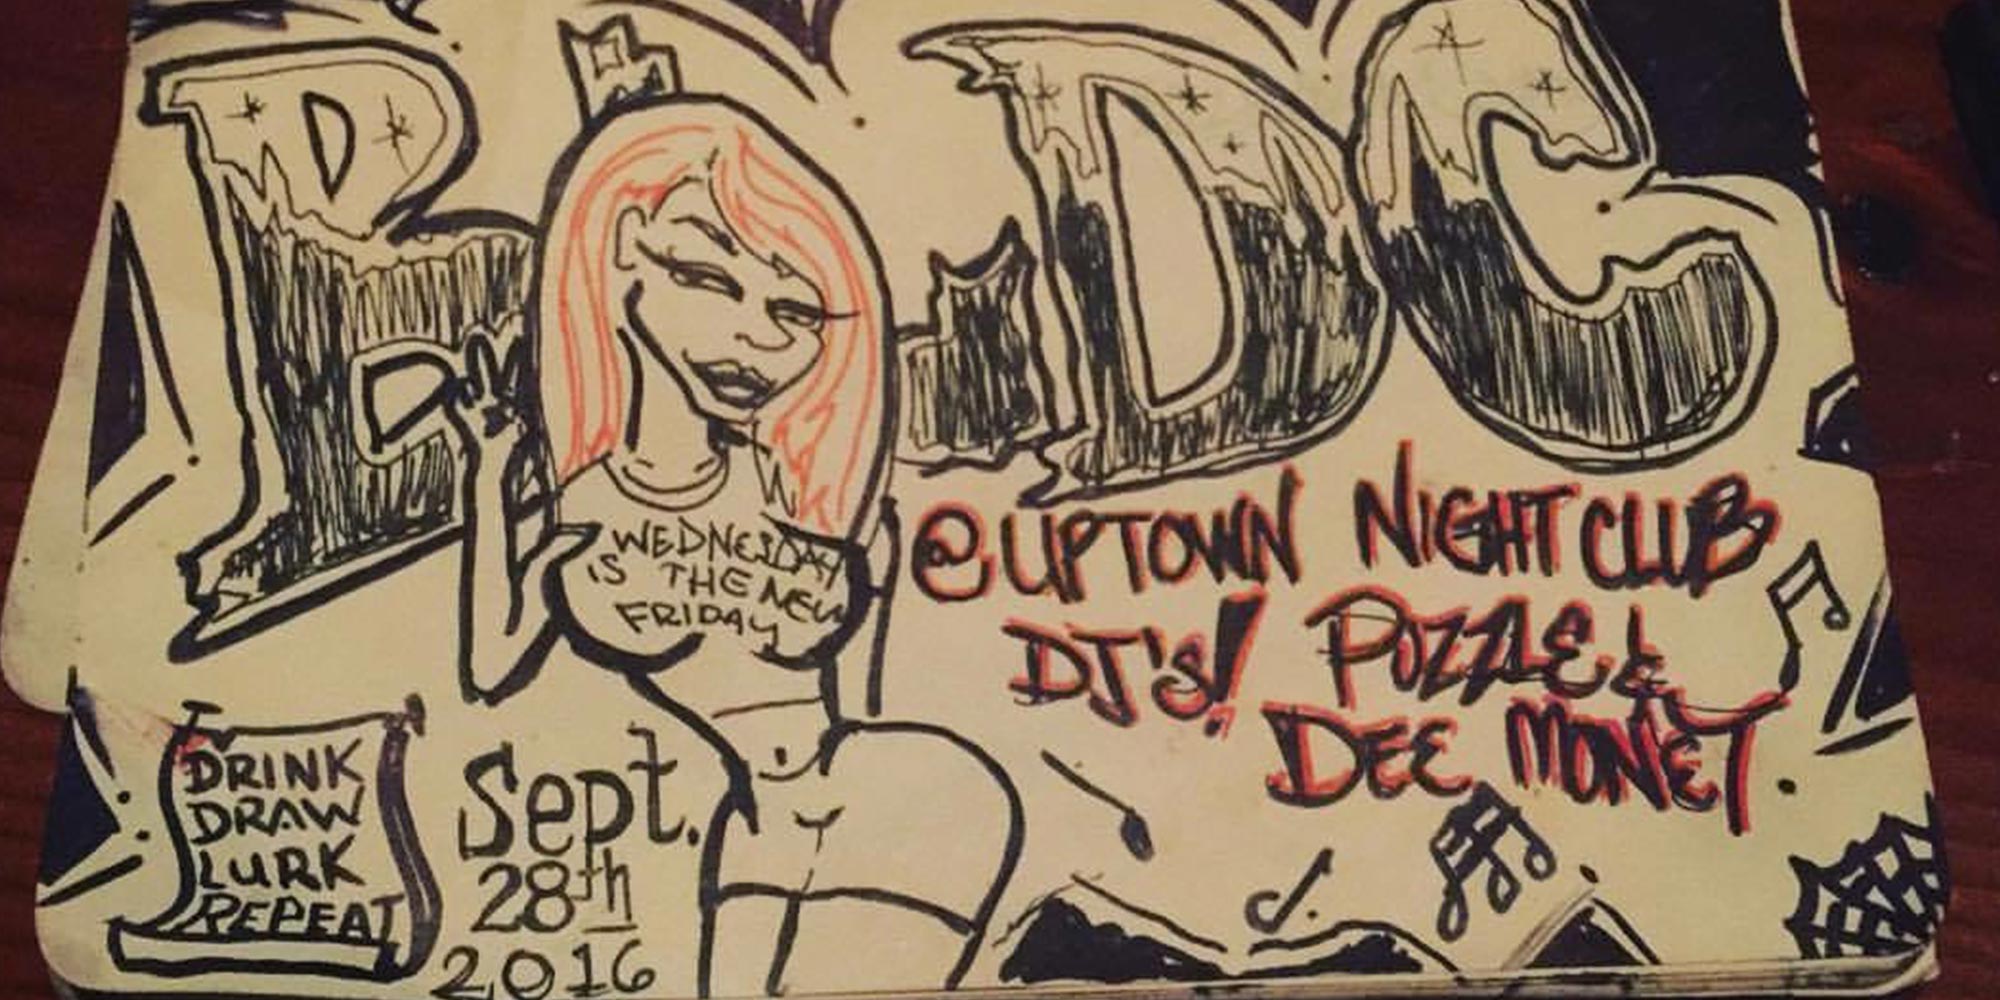 WEDNESDAY
IS THE NEW
FRIDAY
@UPTOWN NIGHT CLUB
DJ'S! PUZZLE &
DEE MONEY
DRINK
DRAW
LURK
REPEAT
Sept.
28th
2016